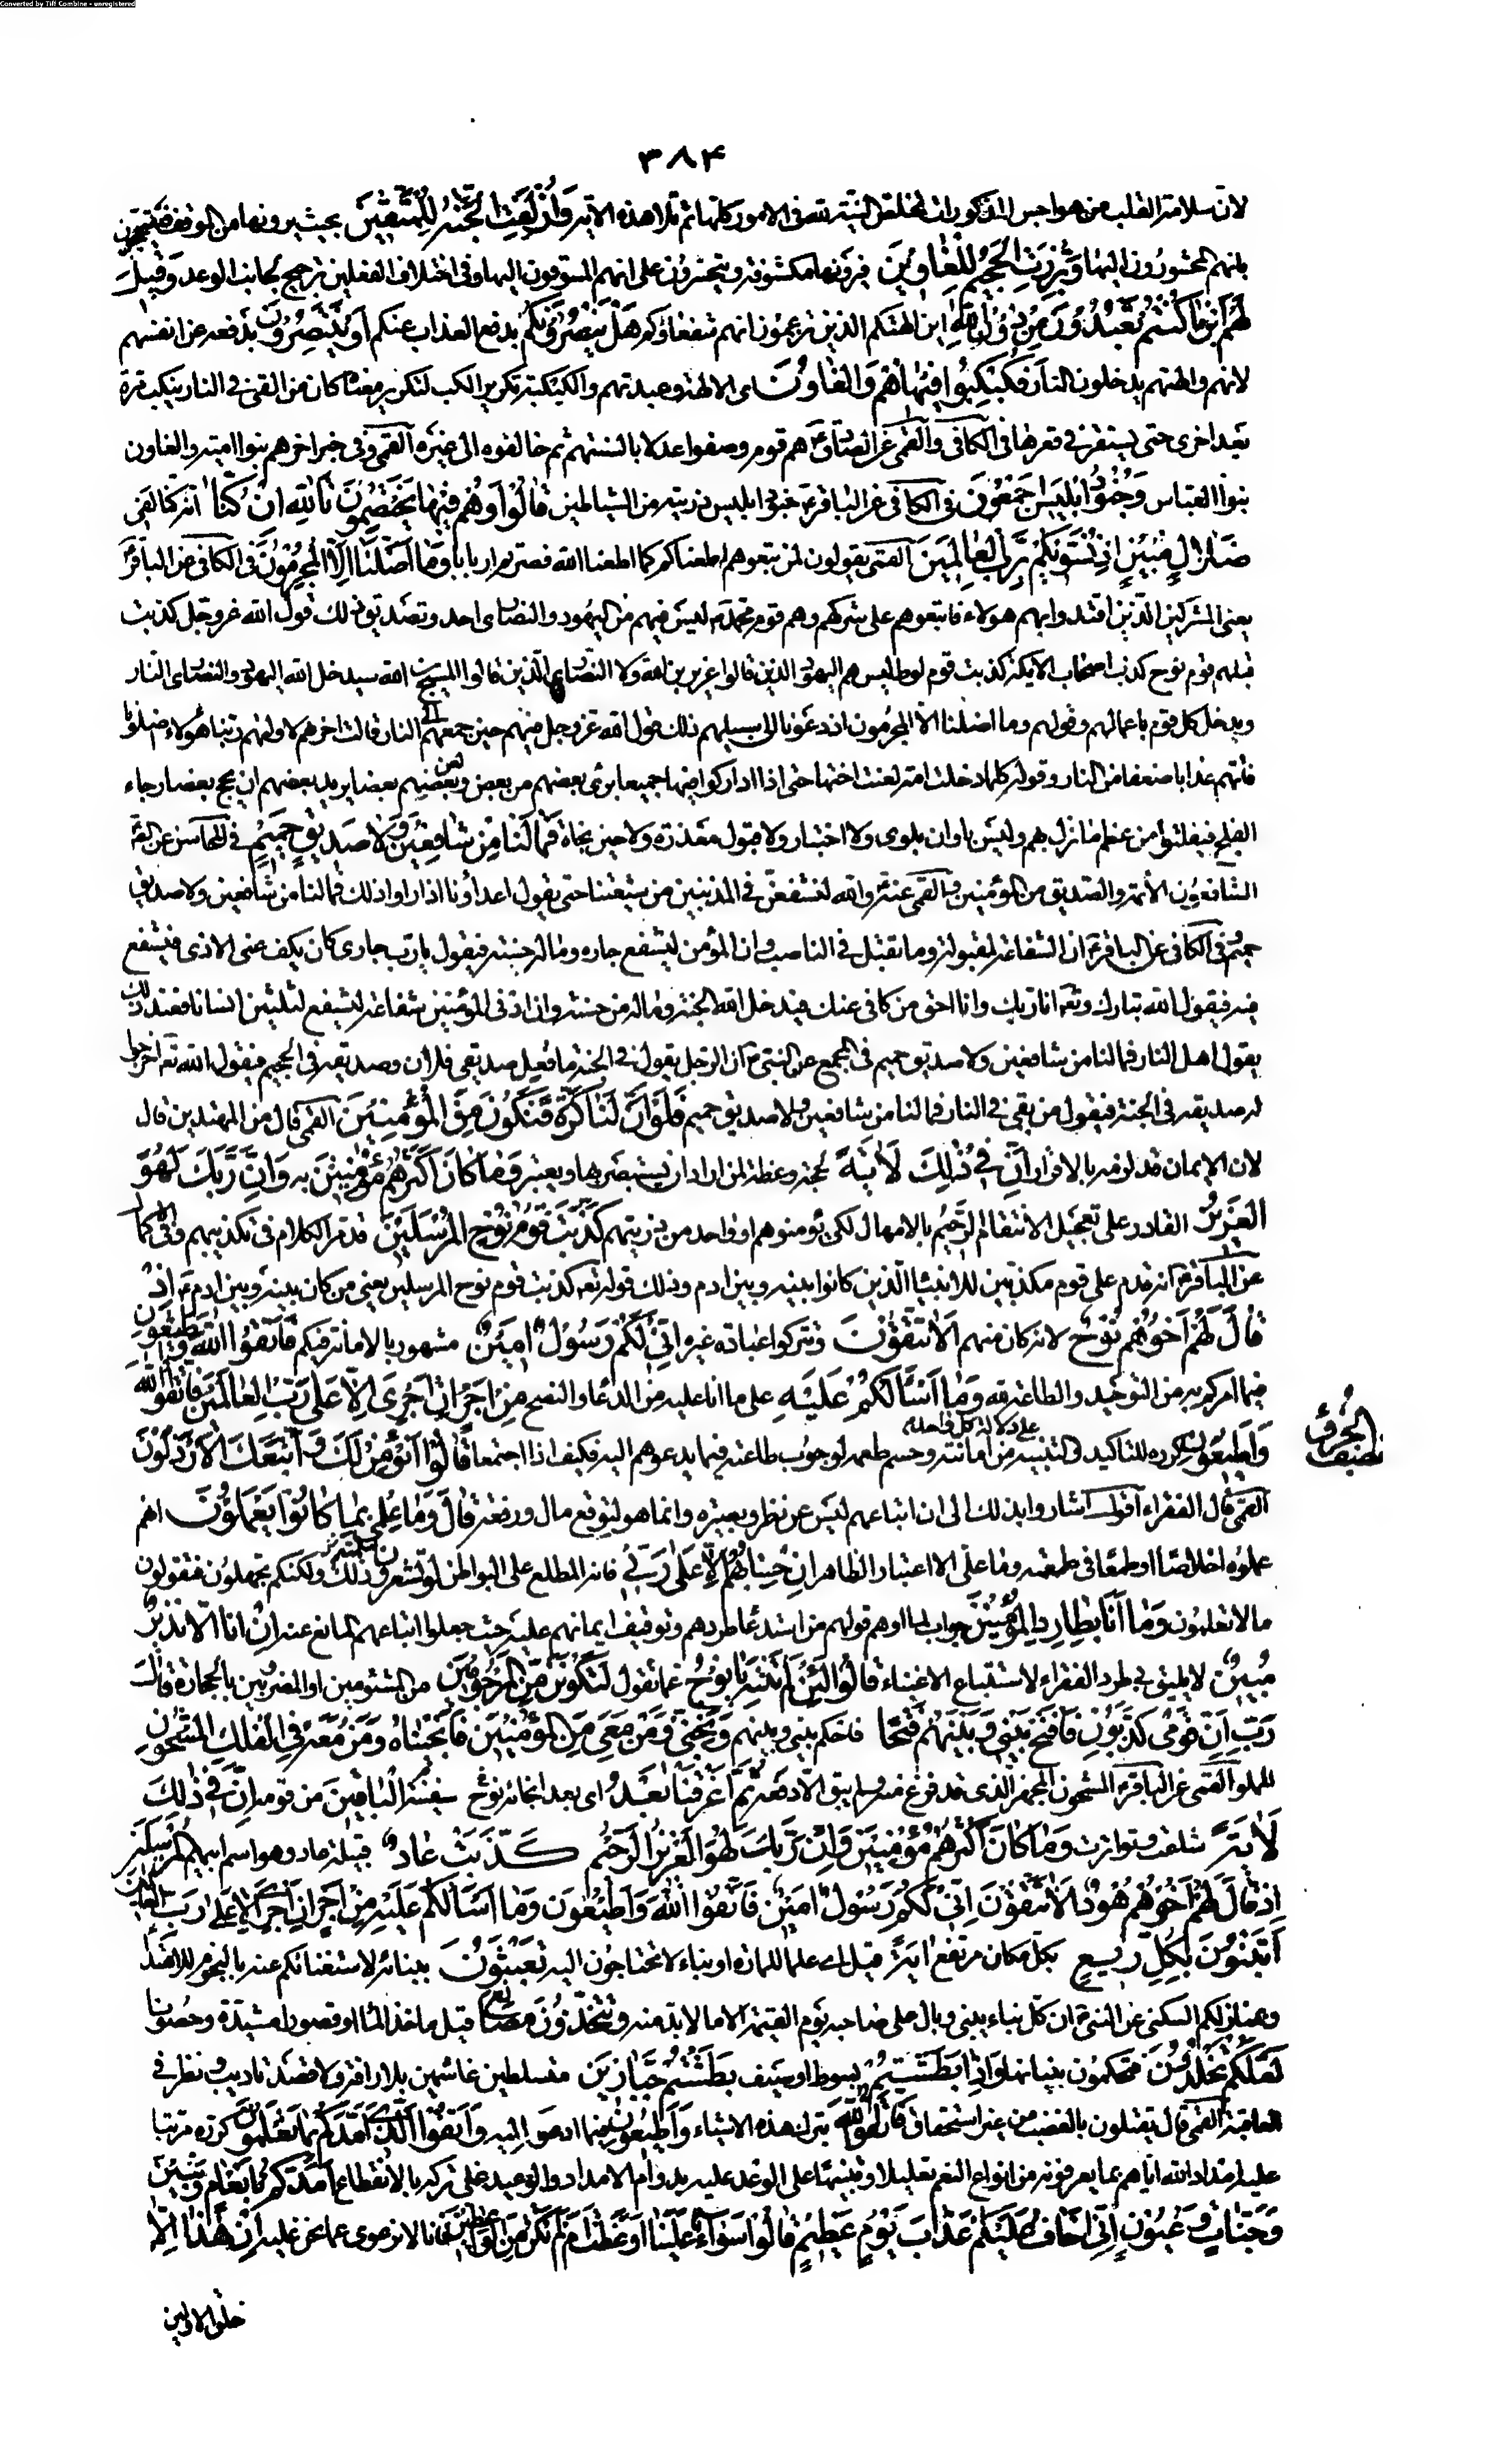 Converted by Tiff Combine - unregistered
۳۸۴
لان سلامة القلب من هواجس المذكورات تخلص النية لله فى الامور كلها ثم تلا هذه الآية وَاُزْلِفَتِ الْجَنَّةُ لِلْمُتَّقينَ بحيث يرونها من الموقف فيتبجحون
بانهم المحشورون اليها وَبُرِّزَتِ الْجَحيمُ لِلْغاوينَ فيرونها مكشوفة ويتحسرون على انهم المسوقون اليها وفى اختلاف الفعلين ترجيح لجانب الوعد وَقيلَ
لَهُمْ اَيْنَ ما كُنْتُمْ تَعْبُدُونَ مِنْ دُونِ اللهِ اين الهتكم الذين تزعمون انهم شفعاؤكم هَلْ يَنْصُرُونَكُمْ بدفع العذاب عنكم اَوْ يَنْتَصِرُونَ بدفعه عن انفسهم
لانهم والهتهم يدخلون النار فَكُبْكِبُوا فيها هُمْ وَالْغاوُنَ اى الالهة وعبدتهم والكبكبة تكرير الكب لتكرير معناه كان من القى فى النار ينكب مرة
بعد اخرى حتى يستقر فى قعرها فى الكافى والقمى عن الصادق ع هم قوم وصفوا عدلا بالسنتهم ثم خالفوه الى غيره القمى وفى خبر اخر هم بنوا امية والغاون
بنوا العباس وَجُنُودُ اِبْليسَ اَجْمَعُونَ فى الكافى عن الباقر ع جنود ابليس ذريته من الشياطين قالُوا وَهُمْ فيها يَخْتَصِمُونَ تَاللهِ اِنْ كُنّا انه كنا لَفى
ضَلالٍ مُبينٍ اِذْ نُسَوّيكُمْ بِرَبِّ الْعالَمينَ القمى يقولون لمن تبعوهم اطعناكم كما اطعنا الله فصرتم اربابا وَما اَضَلَّنا اِلَّا الْمُجْرِمُونَ فى الكافى عن الباقر ع
يعنى المشركين الذين اقتدوا بهم هولاء فاتبعوهم على شركهم وهم قوم محمد ص ليس فيهم من اليهود والنصارى احد وتصديق ذلك قول الله عز وجل كذبت
قبلهم قوم نوح كذب اصحاب الايكة كذبت قوم لوط ليس هم اليهود الذين قالوا عزير بن الله ولا النصارى الذين قالوا المسيح بن الله سيدخل الله اليهود والنصارى النار
ويدخل كل قوم باعمالهم وقولهم وما اضلنا الا المجرمون اذ دعونا الى سبيلهم ذلك قول الله عز وجل فيهم حين جمعهم الى النار قالت اخرهم لاولهم ربنا هولاء اضلونا
فاتهم عذابا ضعفا من النار وقوله كلما دخلت امة لعنت اختها حتى اذا اداركوا فيها جميعا برئ بعضهم من بعض ولعن بعضهم بعضا يريد بعضهم ان يحج بعضا رجاء
الفلج فيفلتوا من عظم ما نزل بهم وليس باوان بلوى ولا اختبار ولا قبول معذرة ولا حين نجاة فَما لَنا مِنْ شافِعينَ وَلا صَديقٍ حَميمٍ فى المحاسن عن
الشافعون الائمة والصديق من المؤمنين والقمى عنه والله لنشفعن فى المذنبين من شيعتنا حتى يقول اعداؤنا اذا راوا ذلك فما لنا من شافعين ولا صديق
حميم فى الكافى عن الباقر ع ان الشفاعة لمقبولة وما تقبل فى الناصب وان المؤمن ليشفع جاره وما له حسنة فيقول يا رب جارى كان يكف عنى الاذى فيشفع
فيه فيقول الله تبارك وتعالى انا ربك وانا احق من كافى عنك فيدخل الله الجنة وماله من حسنة وان ادنى المؤمنين شفاعة ليشفع لثلثين انسانا فعند ذلك
يقول اهل النار فما لنا من شافعين ولا صديق حميم فى المجمع عن النبى ص ان الرجل يقول فى الجنة ما فعل صديقى فلان وصديقه فى الجحيم فيقول الله تعالى اخرجوا
له صديقه فى الجنة فيقول من بقى فى النار فما لنا من شافعين ولا صديق حميم فَلَوْ اَنَّ لَنا كَرَّةً فَنَكُونَ مِنَ الْمُؤْمِنينَ القمى قال من المهتدين قال
لان الايمان قد لزمه بالاقرار اِنَّ فى ذلِكَ لَايَةً لحجة وعظة لمن اراد ان يستبصر بها ويعتبر وَما كانَ اَكْثَرُهُمْ مُؤْمِنينَ به وَاِنَّ رَبَّكَ لَهُوَ
الْعَزيزُ القادر على تعجيل الانتقام الرَّحيمُ بالامهال لكى يؤمنوا هم او واحد من ذريتهم كَذَّبَتْ قَوْمُ نُوحٍ الْمُرْسَلينَ قد مر الكلام فى تكذيبهم وفى الاكمال
عن الباقر ع انه قدم على قوم مكذبين للانبياء الذين كانوا بينه وبين ادم وذلك قوله تعالى كذبت قوم نوح المرسلين يعنى من كان بينه وبين ادم ع اِذْ
قالَ لَهُمْ اَخُوهُمْ نُوحٌ لانه كان منهم اَلا تَتَّقُونَ فتتركوا عبادة غيره اِنّى لَكُمْ رَسُولٌ اَمينٌ مشهور بالامانة فيكم فَاتَّقُوا اللهَ وَاَطيعُونِ
فيما امركم به من التوحيد والطاعة لله وَما اَسْاَلُكُمْ عَلَيْهِ على ما انا عليه من الدعاء والنصح مِنْ اَجْرٍ اِنْ اَجْرِىَ اِلّا عَلى رَبِّ الْعالَمينَ فَاتَّقُوا اللهَ
الجزء
نصف
على دلالة كل واحد
وَاَطيعُونِ كرره للتاكيد والتنبيه من امانته وحسم طمعه لوجوب طاعته فيما يدعوهم اليه فكيف اذا اجتمعا قالُوا اَنُؤْمِنُ لَكَ وَاتَّبَعَكَ الْاَرْذَلُونَ
القمى قال الفقراء اقول اشاروا بذلك الى ان اتباعهم ليس عن نظر وبصيرة وانما هو لتوقع مال ورفعة قالَ وَما عِلْمى بِما كانُوا يَعْمَلُونَ انهم
عملوه اخلاصا او طمعا فى طعمة وما على الا اعتبار الظاهر اِنْ حِسابُهُمْ اِلّا عَلى رَبّى فانه المطلع على البواطن لَوْ تَشْعُرُونَ ذلك ولكنكم تجهلون فتقولون
ما لا تعلمون وَما اَنَا بِطارِدِ الْمُؤْمِنينَ جواب لما اوهم قولهم من استدعاء طردهم وتوقيف ايمانهم عليه حيث جعلوا اتباعهم المانع عنه اِنْ اَنَا اِلّا نَذيرٌ
مُبينٌ لا يليق بى طرد الفقراء لاستتباع الاغنياء قالُوا لَئِنْ لَمْ تَنْتَهِ يا نُوحُ عما تقول لَتَكُونَنَّ مِنَ الْمَرْجُومينَ من المشتومين او المضروبين بالحجارة قالَ
رَبِّ اِنَّ قَوْمى كَذَّبُونِ فَافْتَحْ بَيْنى وَبَيْنَهُمْ فَتْحًا فاحكم بينى وبينهم وَنَجِّنى وَمَنْ مَعِىَ مِنَ الْمُؤْمِنينَ فَاَنْجَيْناهُ وَمَنْ مَعَهُ فِى الْفُلْكِ الْمَشْحُونِ
المملو القمى عن الباقر ع المشحون المجهز الذى قد فرغ منه ولم يبق الا دفعه ثُمَّ اَغْرَقْنا بَعْدُ اى بعد انجائه نوح ومن فى السفينة الْباقينَ من قومه اِنَّ فى ذلِكَ
لَايَةً شاعت وتواترت وَما كانَ اَكْثَرُهُمْ مُؤْمِنينَ وَاِنَّ رَبَّكَ لَهُوَ الْعَزيزُ الرَّحيمُ كَذَّبَتْ عادٌ قبيلة عاد وهو اسم ابيهم الْمُرْسَلينَ
اِذْ قالَ لَهُمْ اَخُوهُمْ هُودٌ اَلا تَتَّقُونَ اِنّى لَكُمْ رَسُولٌ اَمينٌ فَاتَّقُوا اللهَ وَاَطيعُونِ وَما اَسْاَلُكُمْ عَلَيْهِ مِنْ اَجْرٍ اِنْ اَجْرِىَ اِلّا عَلى رَبِّ الْعالَمينَ
اَتَبْنُونَ بِكُلِّ ريعٍ بكل مكان مرتفع ايَةً قيل اى علما للمارة او بناء لا تحتاجون اليه تَعْبَثُونَ ببنائه لاستغنائكم عنه بالنجوم للاهتداء
ومنازلكم للسكنى عن النبى ص ان كل بناء يبنى وبال على صاحبه يوم القيمة الا ما لا بد منه وَتَتَّخِذُونَ مَصانِعَ قيل ماخذ الماء او قصورا مشيدة وحصونا
لَعَلَّكُمْ تَخْلُدُونَ فتحكمون بنيانها وَاِذا بَطَشْتُمْ بسوط او سيف بَطَشْتُمْ جَبّارينَ متسلطين غاشمين بلا رافة ولا قصد تاديب ونظر فى
العاقبة القمى قال يقتلون بالغضب من غير استحقاق فَاتَّقُوا اللهَ بترك هذه الاشياء وَاَطيعُونِ فيما ادعوكم اليه وَاتَّقُوا الَّذى اَمَدَّكُمْ بِما تَعْلَمُونَ كرره مرتبا
عليه امداد الله اياهم بما يعرفونه من انواع النعم تعليلا وتنبيها على الوعد عليه بدوام الامداد والوعيد على تركه بالانقطاع اَمَدَّكُمْ بِاَنْعامٍ وَبَنينَ
وَجَنّاتٍ وَعُيُونٍ اِنّى اَخافُ عَلَيْكُمْ عَذابَ يَوْمٍ عَظيمٍ قالُوا سَواءٌ عَلَيْنا اَوَعَظْتَ اَمْ لَمْ تَكُنْ مِنَ الْواعِظينَ فانا لا نرعوى عما نحن عليه اِنْ هذا اِلّا
خلق الاولين